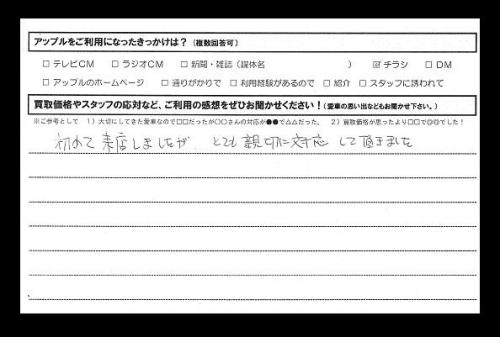 アップルをご利用になったきっかけは？（複数回答可）
□ テレビCM □ ラジオCM □ 新聞・雑誌（媒体名 ） ☑ チラシ □ DM
□ アップルのホームページ □ 通りがかりで □ 利用経験があるので □ 紹介 □ スタッフに誘われて
買取価格やスタッフの応対など、ご利用の感想をぜひお聞かせください！（愛車の思い出などもお聞かせ下さい。）
※ご参考として 1）大切にしてきた愛車なので□□だったが○○さんの対応が●●で△△だった。 2）買取価格が思ったより□□で◎◎でした！
初めて来店しましたが とても親切に対応して頂きました